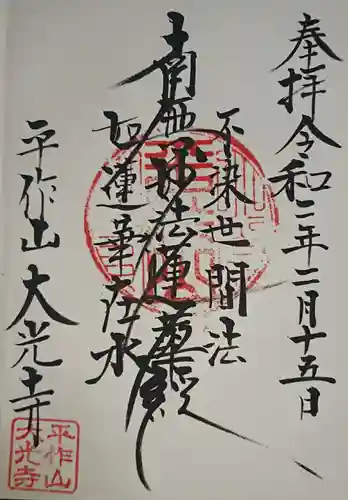 奉拝 令和二年二月十五日
不染世間法
南無妙法蓮華経
如蓮華在水
平作山 大光寺
平作山
大光寺